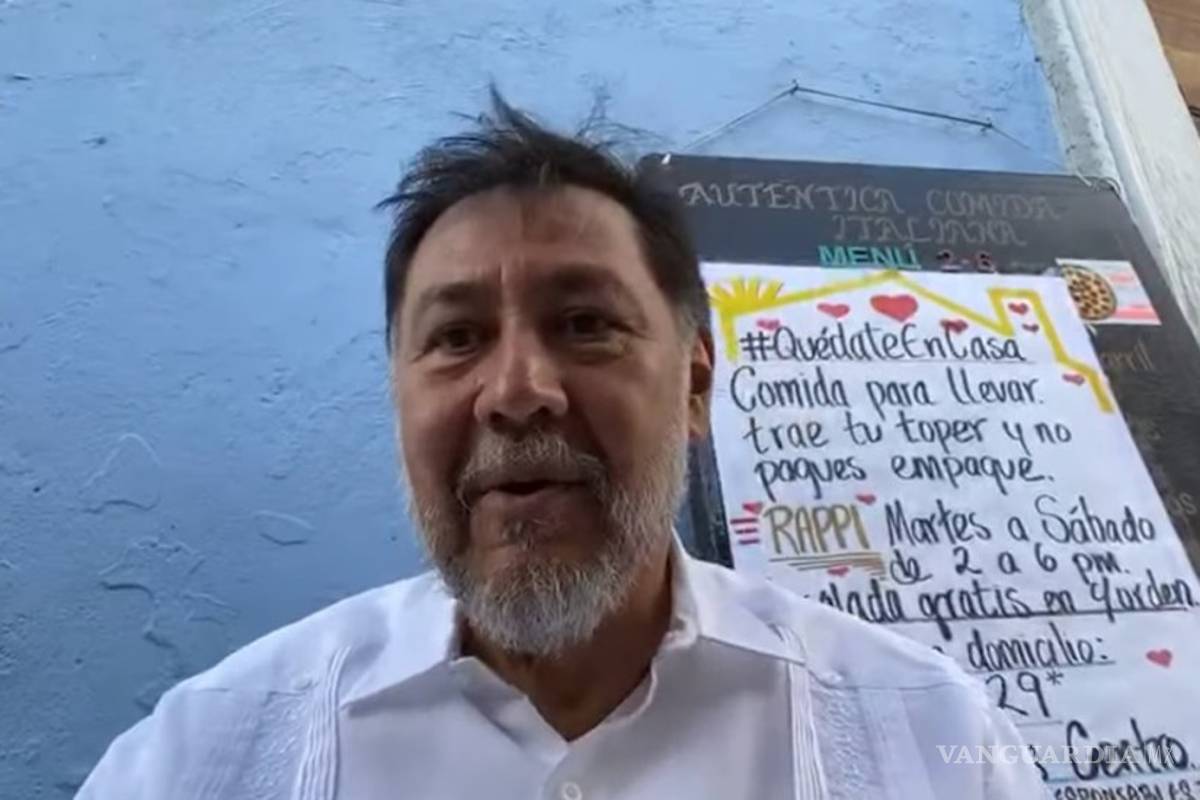 AUTÉNTICA COMIDA
ITALIANA
MENÚ 2-6
#QuédateEnCasa
Comida para llevar.
trae tu toper y no
pagues empaque.
RAPPI Martes a Sábado
de 2 a 6 pm.
gratis en orden
domicilio:
29*
Centro.
VANGUARDIA MX